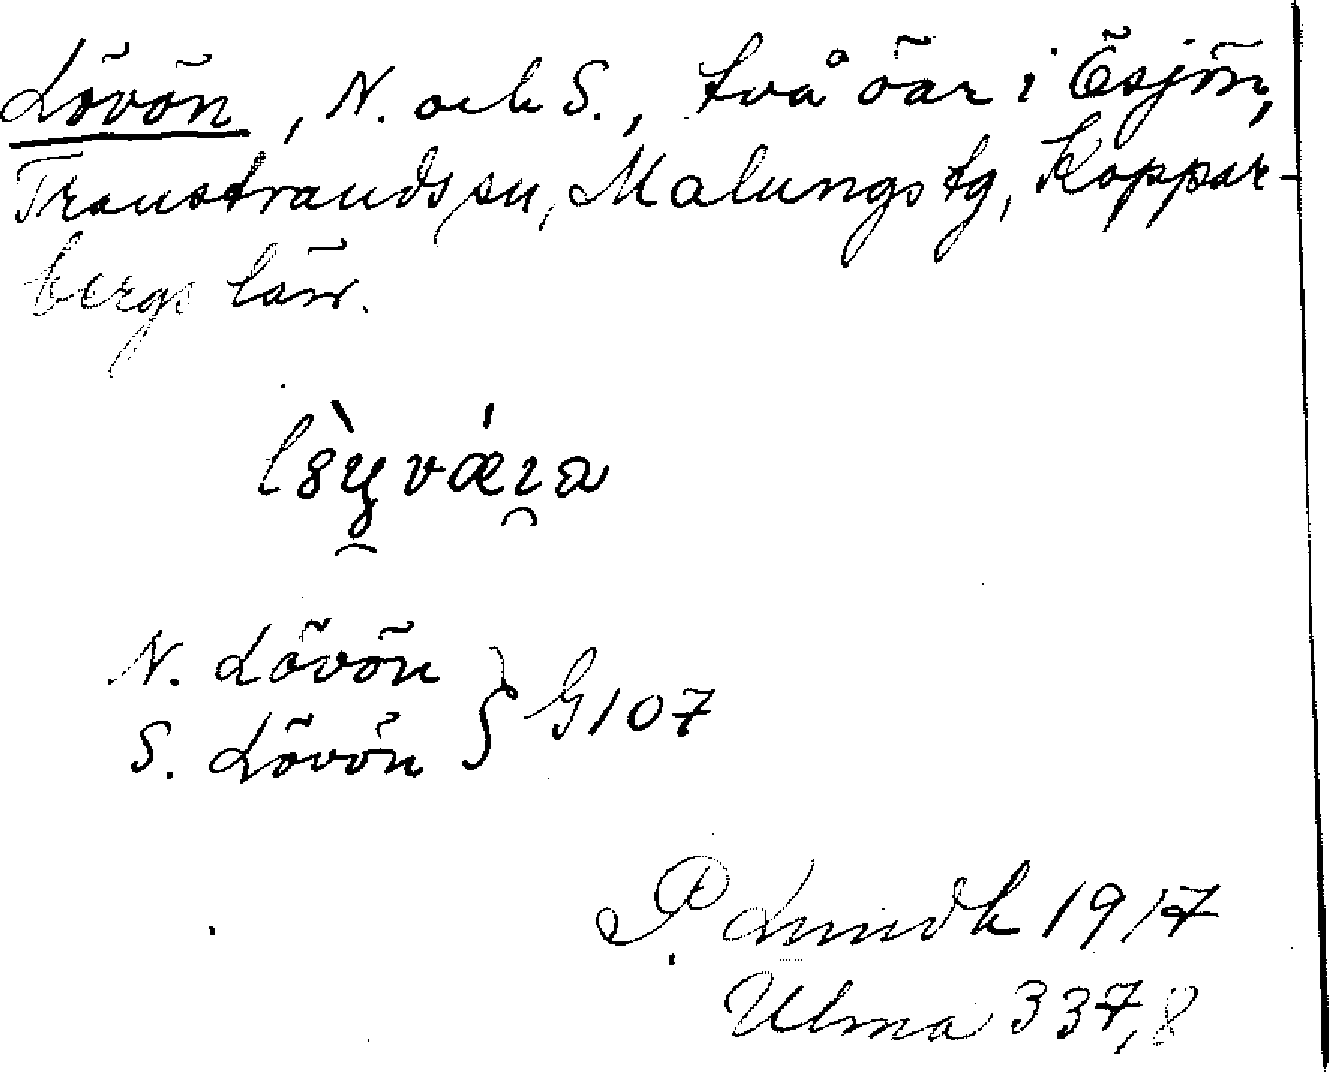 Lövön, N. och S., två öar i Ösjön,
Transtrands sn, Malungs tg, Koppar-
bergs län.
N. Lövön
S. Lövön } G107
P. Lundh 1917
Ulma 337,8